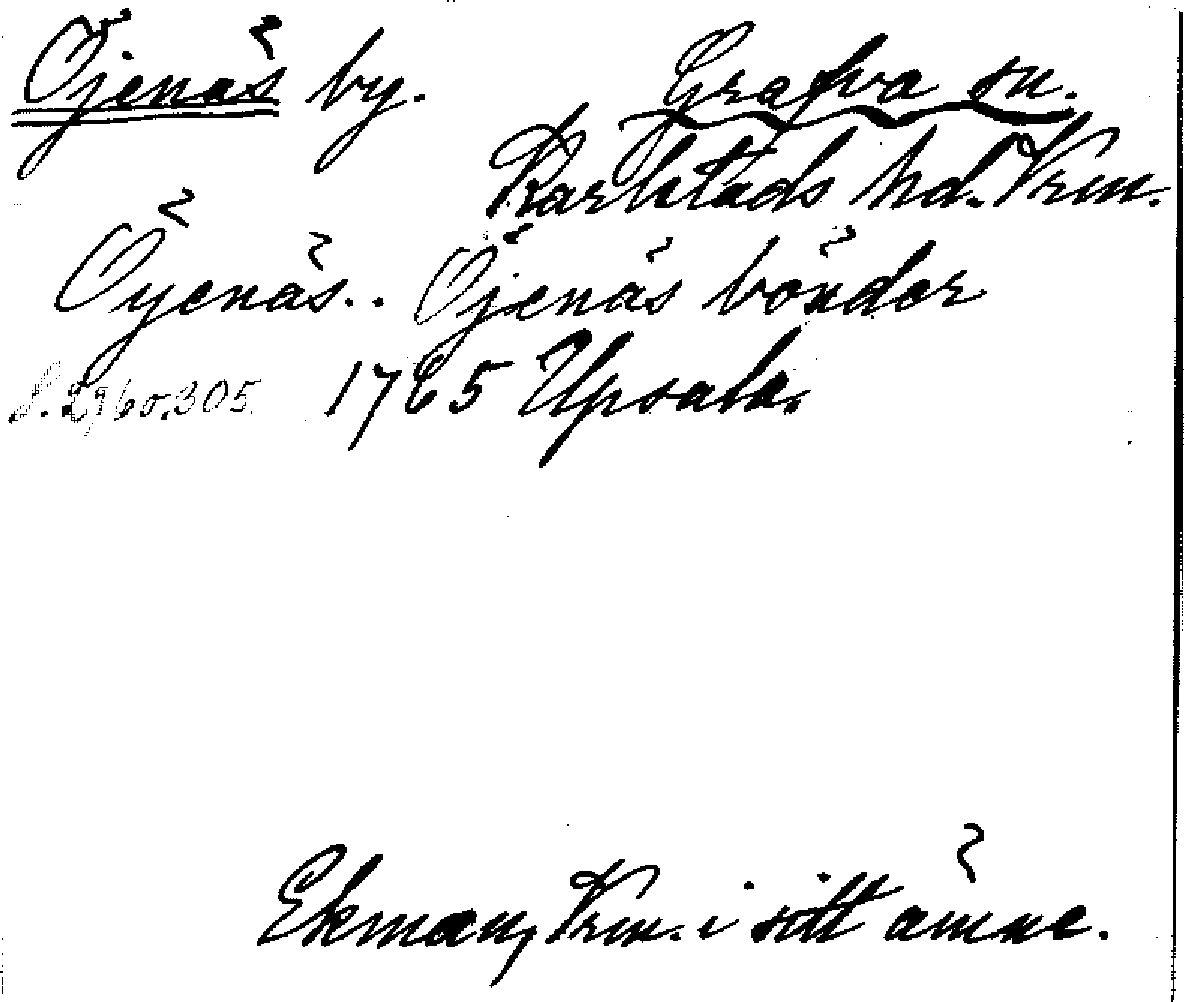 Öjenäs by. Grafva sn.
Karlstads hd. Vrm.
Öyenäs.. Öjenäs bönder
S. 296 o. 305. 1765 Upsala.
Ekman, Vrm. i sitt ämne.